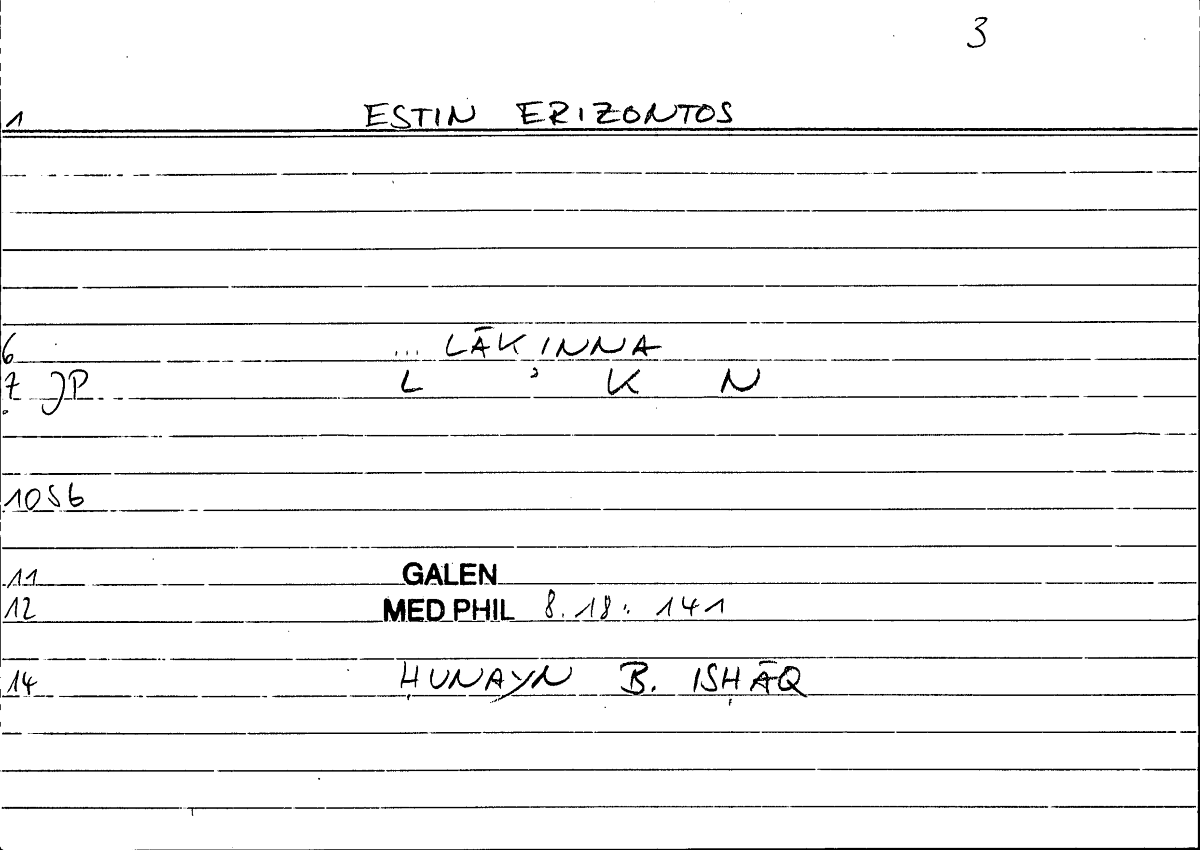 3
1 ESTIN ERIZONTOS
6 ... LĀKINNA
7 JP L ʾ K N
10 S6
11 GALEN
12 MED PHIL 8.18: 141
14 ḤUNAYN B. ISḤĀQ